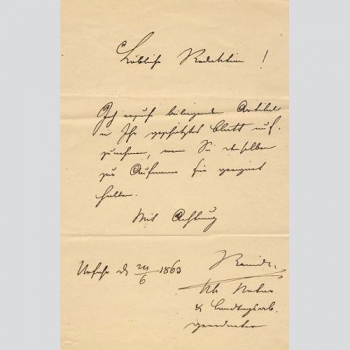 Löbliche Redaktion!
Ich ersuche beiliegenden Artikel
in Ihr geschätztes Blatt auf-
zunehmen, wenn Sie denselben
zur Aufnahme für geeignet
halten.
Mit Achtung
Urfahr d 24/6 1863
& Landtagsab-
geordneter